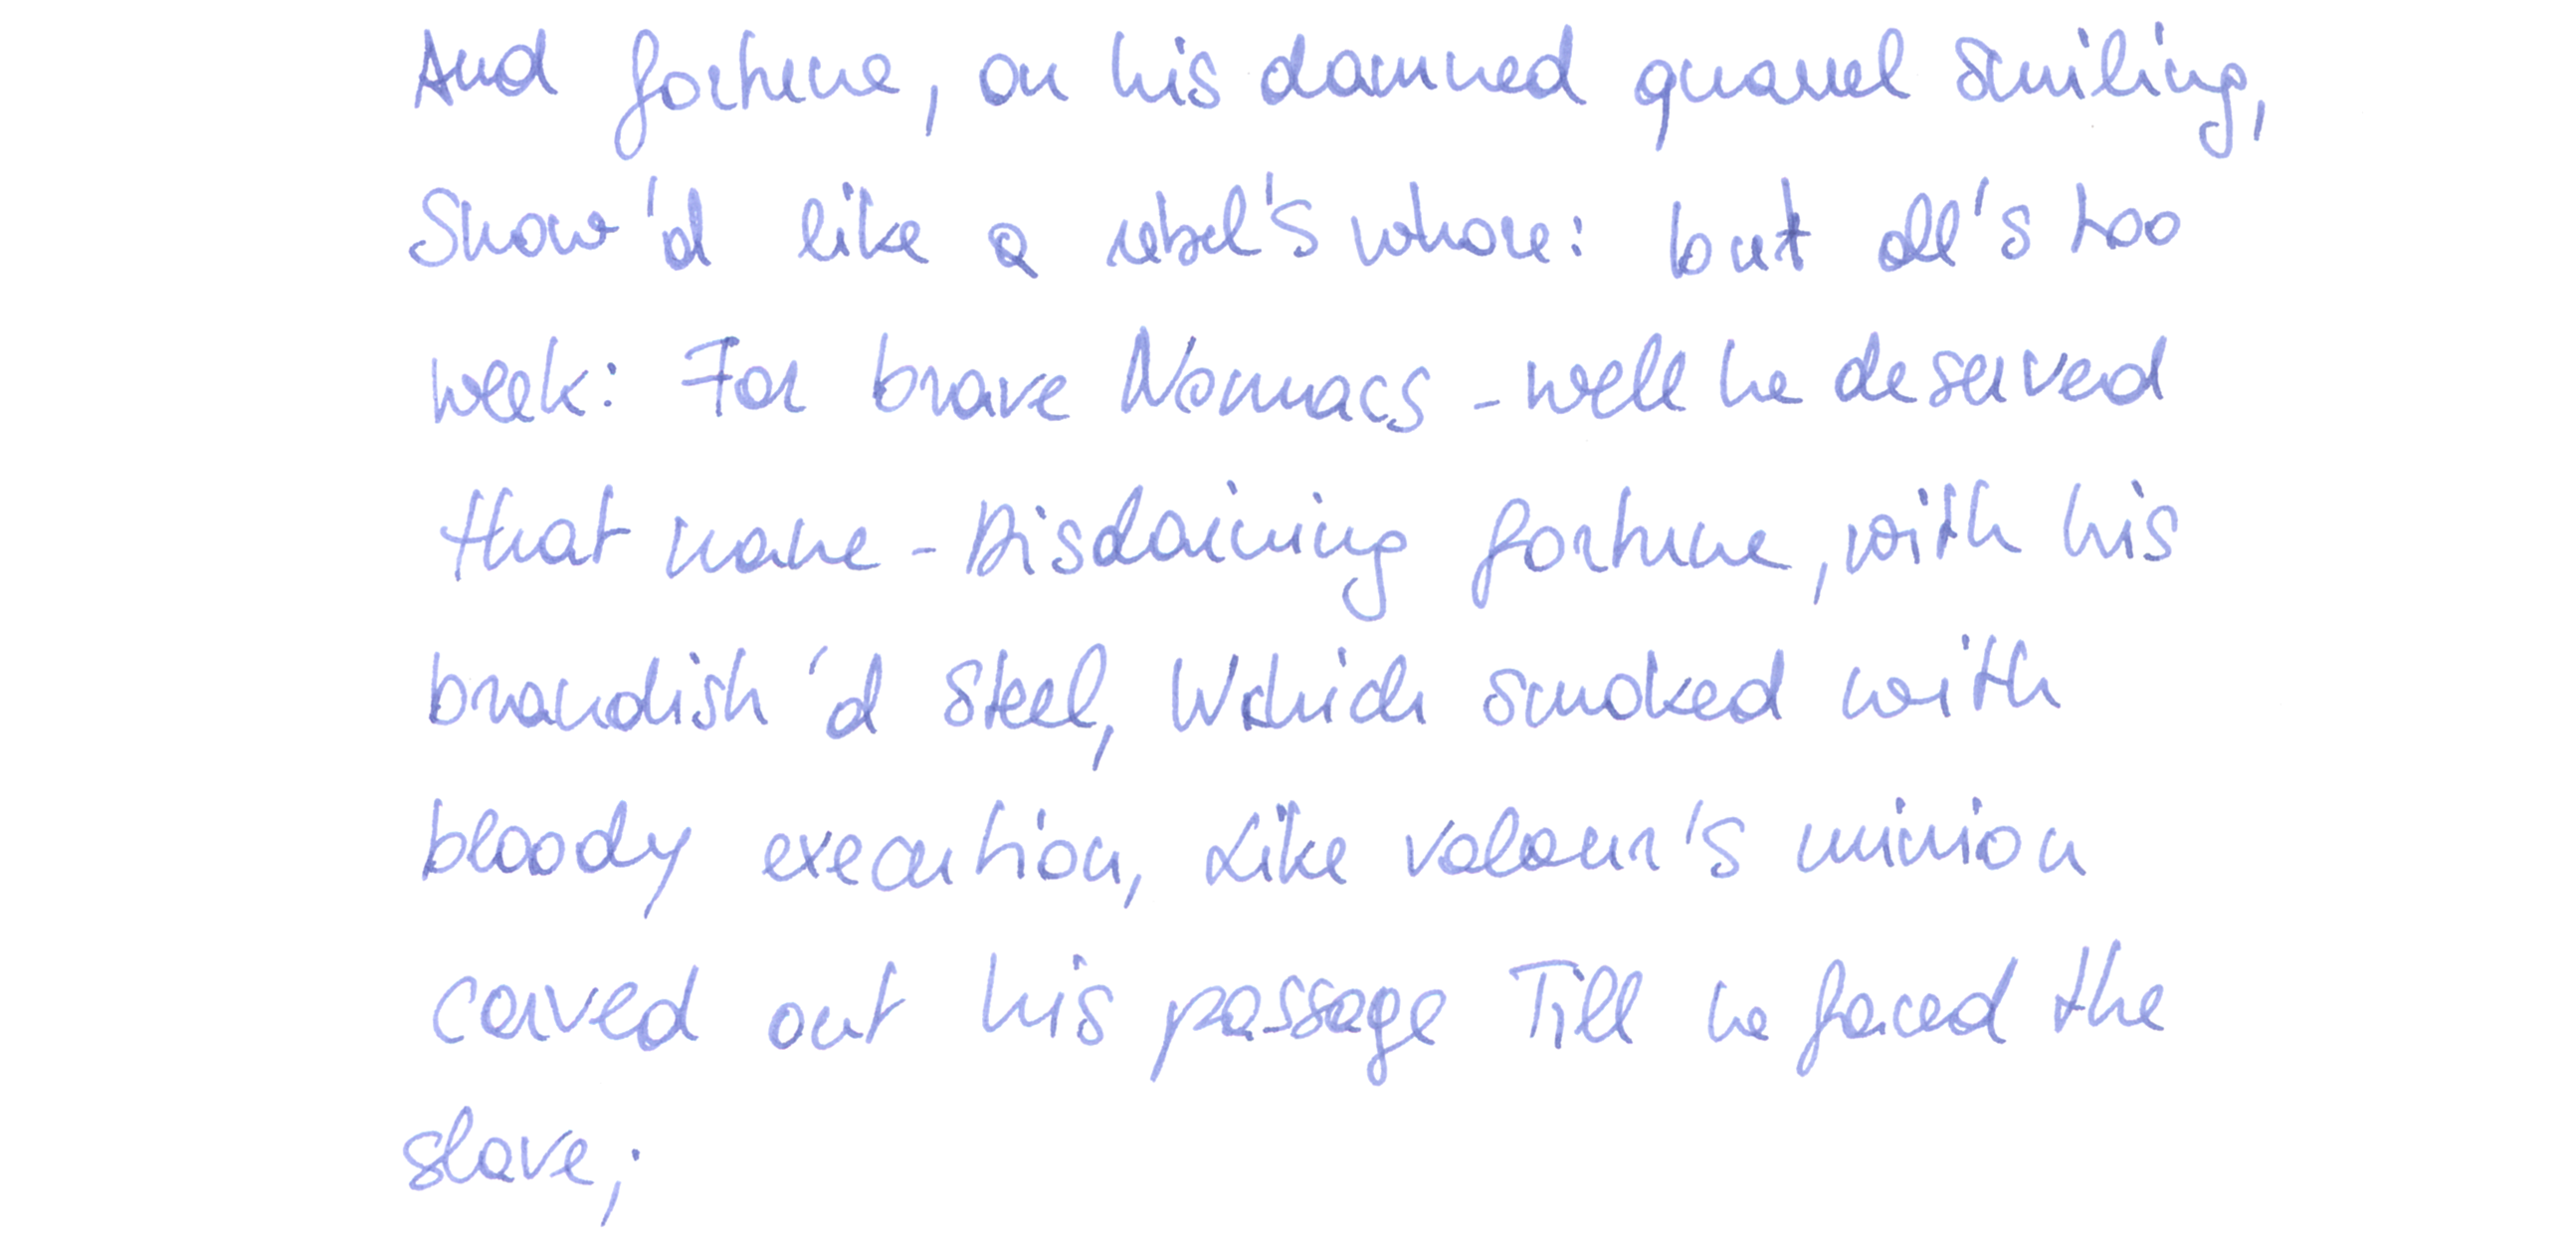 And fortune, on his damned quarrel smiling,
Show'd like a rebel's whore: but all's too
week: For brave Nomacs - well he deserved
that name - Disdaining fortune, with his
brandish'd steel, Which smoked with
bloody execution, Like valour's minion
carved out his passage Till he faced the
slave;